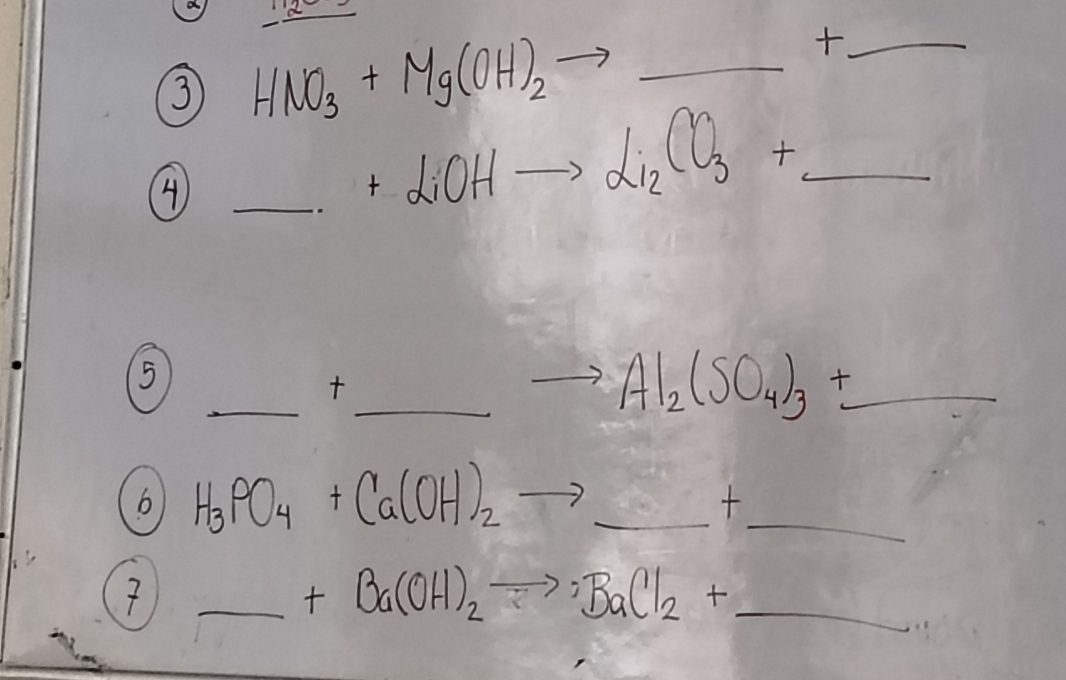 ③ HNO₃ + Mg(OH)₂ → ____ + ____
④ ____ + LiOH → Li₂CO₃ + ____
⑤ ____ + ____ → Al₂(SO₄)₃ + ____
⑥ H₃PO₄ + Ca(OH)₂ → ____ + ____
⑦ ____ + Ba(OH)₂ → BaCl₂ + ____